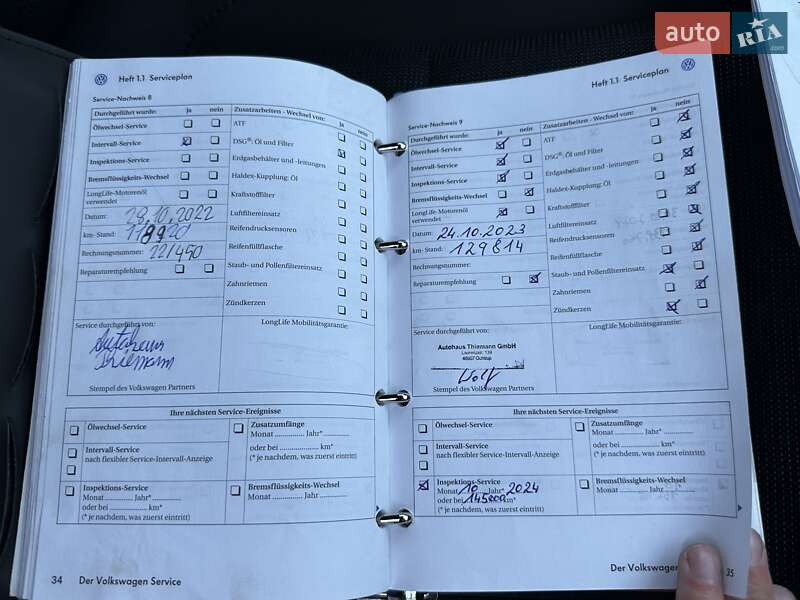 auto RIA.com
Heft 1.1 Serviceplan
Service-Nachweis 8
Durchgeführt wurde: ja nein
Ölwechsel-Service
Intervall-Service
Inspektions-Service
Bremsflüssigkeits-Wechsel
LongLife-Motorenöl
verwendet
Datum: 25.10.2022
km-Stand: 118920
Rechnungsnummer: 221450
Reparaturempfehlung
Zusatzarbeiten - Wechsel von: ja nein
ATF
DSG®: Öl und Filter
Erdgasbehälter und -leitungen
Haldex-Kupplung: Öl
Kraftstofffilter
Luftfiltereinsatz
Reifendrucksensoren
Reifenfüllflasche
Staub- und Pollenfiltereinsatz
Zahnriemen
Zündkerzen
Service durchgeführt von:
Autohaus
Thiemann
Stempel des Volkswagen Partners
LongLife Mobilitätsgarantie:
Ihre nächsten Service-Ereignisse
Ölwechsel-Service
Intervall-Service
nach flexibler Service-Intervall-Anzeige
Zusatzumfänge
Monat .............. Jahr* ............
oder bei .................... km*
(* je nachdem, was zuerst eintritt)
Inspektions-Service
Monat ............ Jahr* ............
oder bei .................... km*
(* je nachdem, was zuerst eintritt)
Bremsflüssigkeits-Wechsel
Monat .............. Jahr ............
34 Der Volkswagen Service
Heft 1.1 Serviceplan
Service-Nachweis 9
Durchgeführt wurde: ja nein
Ölwechsel-Service
Intervall-Service
Inspektions-Service
Bremsflüssigkeits-Wechsel
LongLife-Motorenöl
verwendet
Datum: 24.10.2023
km-Stand: 129814
Rechnungsnummer:
Reparaturempfehlung
Zusatzarbeiten - Wechsel von: ja nein
ATF
DSG®: Öl und Filter
Erdgasbehälter und -leitungen
Haldex-Kupplung: Öl
Kraftstofffilter
Luftfiltereinsatz
Reifendrucksensoren
Reifenfüllflasche
Staub- und Pollenfiltereinsatz
Zahnriemen
Zündkerzen
Service durchgeführt von:
Autohaus Thiemann GmbH
Wolf
Stempel des Volkswagen Partners
LongLife Mobilitätsgarantie:
Ihre nächsten Service-Ereignisse
Ölwechsel-Service
Intervall-Service
nach flexibler Service-Intervall-Anzeige
Zusatzumfänge
Monat .............. Jahr* ............
oder bei .................... km*
(* je nachdem, was zuerst eintritt)
Inspektions-Service
Monat 10 Jahr* 2024
oder bei 145000 km*
(* je nachdem, was zuerst eintritt)
Bremsflüssigkeits-Wechsel
Monat .............. Jahr ............
Der Volkswagen 35